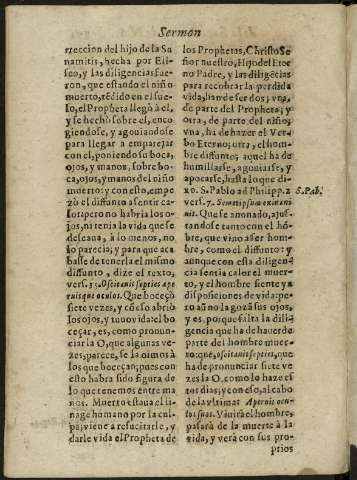 Sermon
rreccion del hijo de la Su
namitis, hecha por Eli-
seo, y las diligencias fue-
ron, que estando el niño
muerto, tẽdido en el sue-
lo, el Propheta llegò à el,
y se hechò sobre el, enco
giendose, y agouiandose
para llegar a emparejar
con el, poniendo su boca,
ojos, y manos, sobre bo-
ca, ojos, y manos del niño
muerto: y con esto, empe
zò el difunto a sentir ca-
lor: pero no habria los o-
jos, ni tenia la vida que se
desseaua, à lo menos, no
lo parecia; y para que aca
basse de tenerla el mismo
diffunto, dize el texto,
vers. 35. Oscitauit septies ape
ruitque oculos. Que boceçò
siete vezes, y cõ esso abriò
los ojos, y tuuo vida: el bo
ceçar, es, como pronun-
ciar la O, que algunas ve-
zes; parece, se la oimos à
los que boceçan; pues con
esto habra sido figura de
lo que tenemos entre ma
nos. Muerto estaua el li-
nage humano por la cul-
pa; viene a resucitarle, y
darle vida el Propheta de
los Prophetas, Christo Se
ñor nuestro, Hijo del Eter
no Padre, y las diligẽcias
para recobrar la perdida
vida, han de ser dos; vna,
de parte del Propheta; y
otra, de parte del niño;
vna, ha de hazer el Ver-
bo Eterno; otra, el hom-
bre diffunto; aquel ha de
humillarse, agouiarse, y
apocarse, hasta lo que di-
xo. S. Pablo ad Philipp. 2
vers. 7. Semetipsum exinani
uit. Que se anonado, ajus-
tandose tanto con el hõ-
bre, que vino a ser hom-
bre, como el diffunto: y
aunque con esta diligen-
cia sentia calor el muer-
to, y el hombre siente ya
disposiciones de vida: pe-
ro aũ no la goza sus ojos,
y es, porque falta la dili-
gencia que ha de hauer de
parte del hombre muer-
to: que, oscitauit septies, que
ha de pronunciar siete ve
zes la O, como lo haze es
tos dias; y con eso, al cabo
de la vltima: Aperuit ocu-
los suos. Viuirà el hombre,
pasarà de la muerte à la
vida, y verà con sus pro-
prios
S. Pab.